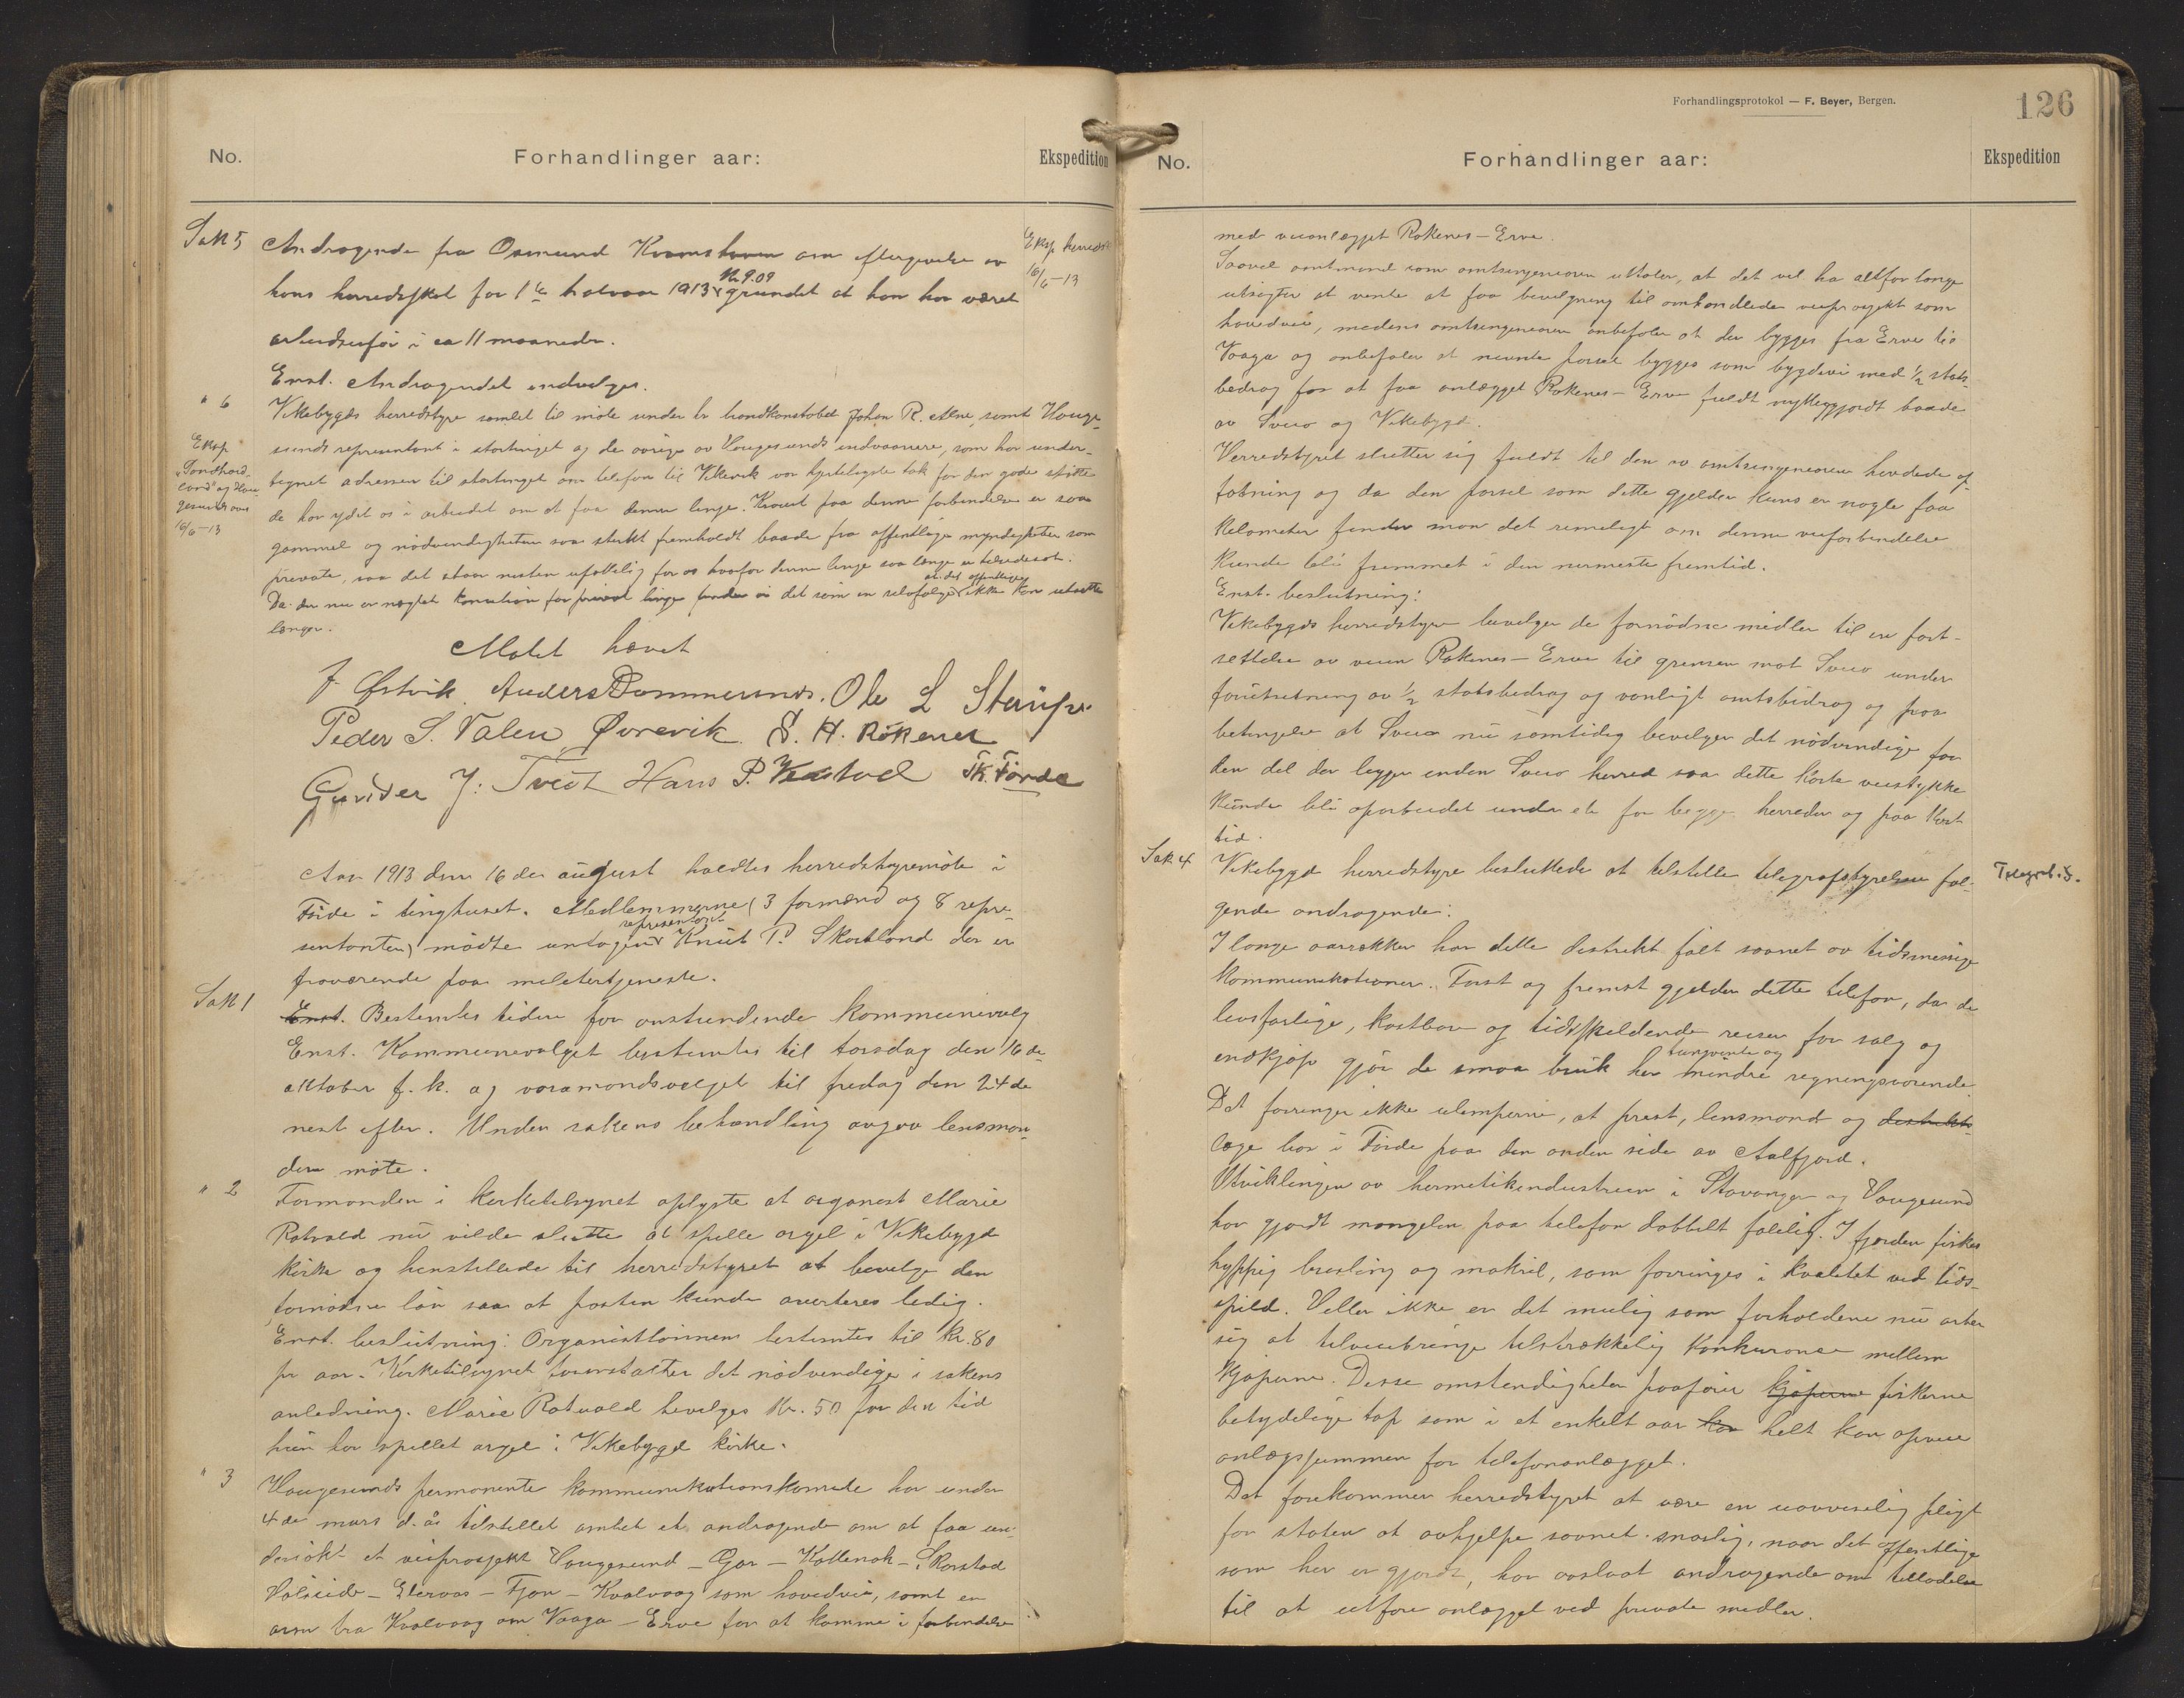 No. Forhandlinger aar: Ekspedition
Sak 5 Andragende fra Osmund om eftergivelse av Eksp herredsk
hans herredsskat for 1ste halvaar 1913 Kr 9.09 grundet at han har været 16/6-13
arbeidsufør i ca 11 maaneder.
Enst. Andragendet indvilges.
" 6 Vikebygds herredstyre samlet til møte under hr handkonstabel Johan R. samt Hauge-
Eksp sunds representant i stortinget og de øvrige av Haugesunds indvaanere, som har under-
"Sondhord- tegnet adressen til stortinget om telefon til Vikevik vor hjerteligste tak for den gode støtte
land" og Hau
gesunds avis de har ydet os i arbeidet om at faa denne linje. Kravet paa denne forbindelse er saa
16/6-13 gammel og nødvendigheten saa sterkt fremholdt baade fra offentlige myndigheter som
private, saa det staar nesten ufattelig for os hvorfor denne linje saa længe er tilsidesat.
Da der nu er nægtet konsesion for privat linje finder vi det som en selvfølge at det offentlige ikke kan utsætte
længer.
Møtet hævet
J Østvik Anders Dommersnes. Ole L Sterupr
Peder S. Valen Øvrevik S. H. Rökenes
Gunder J: Tvedt Hans P. Vestad Tk. Förde
Aar 1913 den 16 de august holdtes herredstyremøte i
Førde i tinghuset. Medlemmerne (3 formænd og 8 repre-
sentanter) mødte untagen representant Knut P. Skartland der er
fraværende paa militertjeneste.
Sak 1 Enst. Bestemtes tiden for anstundende kommunevalg
Enst. Kommunevalget bestemtes til torsdag den 16 de
oktober f. k. og voramandsvalget til fredag den 24 de
nest efter. Under sakens behandling avgav lensman-
den møte.
" 2 Formanden i kirketilsynet oplyste at organist Marie
Rotvold nu vilde slutte at spille orgel i Vikebygd
kirke og henstillede til herredstyret at bevilge den
fornødne løn saa at posten kunde averteres ledig.
Enst. beslutning: Organistlønnen bestemtes til kr. 80
pr aar. Kirketilsynet foranstalter det nødvendige i sakens
anledning. Marie Rotvold bevilges Kr. 50 for den tid
hun har spillet orgel i Vikebygd kirke.
" 3 Haugesunds permanente kommunikationskomite har under
4 de mars d. år tilstillet amtet et andragende om at faa un-
dersøkt et veiprosjekt Haugesund – Gjar – Kallenak – Skorstad
Ølsvid – Eleraas – Fjon – Kvalvaag som hovedvei, samt en
arm fra Kvalvaag om Vaaga – Erve for at komme i forbindelse
Forhandlingsprotokol — F. Beyer, Bergen.
126
No. Forhandlinger aar: Ekspedition
med veianlægget Rokenes – Erve.
Saavel amtmand som amtsingeniøren uttaler, at det vil ha altfor lange
utsigter at vente at faa bevilgning til omhandlede veiprosjekt som
hovedvei, medens amtsingeniøren anbefaler at der bygges fra Erve til
Vaaga og anbefaler at nevnte parsel bygges som bygdevei med ½ stats-
bedrag for at faa anlægget Rokenes – Erve fuldt nyttiggjordt baade
av Sveio og Vikebygd.
Herredstyret slutter sig fuldt til den av amtsingeniøren hevdede op-
fatning og da den parsel som dette gjelder kuns er nogle faa
kilometer finder man det rimeligt om denne veiforbindelse
kunde bli fremmet i den nermeste fremtid.
Enst. beslutning:
Vikebygds herredstyre bevilger de fornødne midler til en fort-
settelse av veien Rokenes – Erve til grensen mot Sveio under
forutsetning av ½ statsbedrag og vanligt amtsbidrag og paa
betingelse at Sveio nu samtidig bevilger det nødvendige for
den del der ligger inden Sveio herred saa dette korte veistykke
kunde bli oparbeidet under et for begge herreder og paa kort
tid.
Sak 4 Vikebygd herredstyre besluttede at tilstille telegrafstyrelsen føl- Telegraf. S.
gende andragende:
I lange aarrækker har dette distrikt følt savnet av tidsmessige
kommunikationer. Først og fremst gjelder dette telefon, da de
livsfarlige, kostbare og tidsspildende reiser for salg og
indkjøp gjør de smaa bruk her tungvinte og mindre regningsvarende.
Det forringer ikke ulemperne, at prest, lensmand og distrikts-
læge bor i Førde paa den anden side av Aalfjord.
Utviklingen av hermetikindustrien i Stavanger og Haugesund
har gjordt mangelen paa telefon dobbelt følelig. I fjorden fiskes
hyppig bresling og makril, som forringes i kvalitet ved tids-
spild. Heller ikke er det mulig som forholdene nu arter
sig at tilveiebringe tilstrækkelig konkurance mellem
kjøperne. Disse omstendigheter paafører kjøperne fiskerne
betydelige tap som i et enkelt aar kan helt kan opveie
anlægssummen for telefonanlægget.
Det forekommer herredstyret at være en uavviselig pligt
for staten at avhjelpe savnet snarlig, naar det offentlige
som her er gjordt, har avslaat andragende om tilladelse
til at utføre anlægget ved private midler.